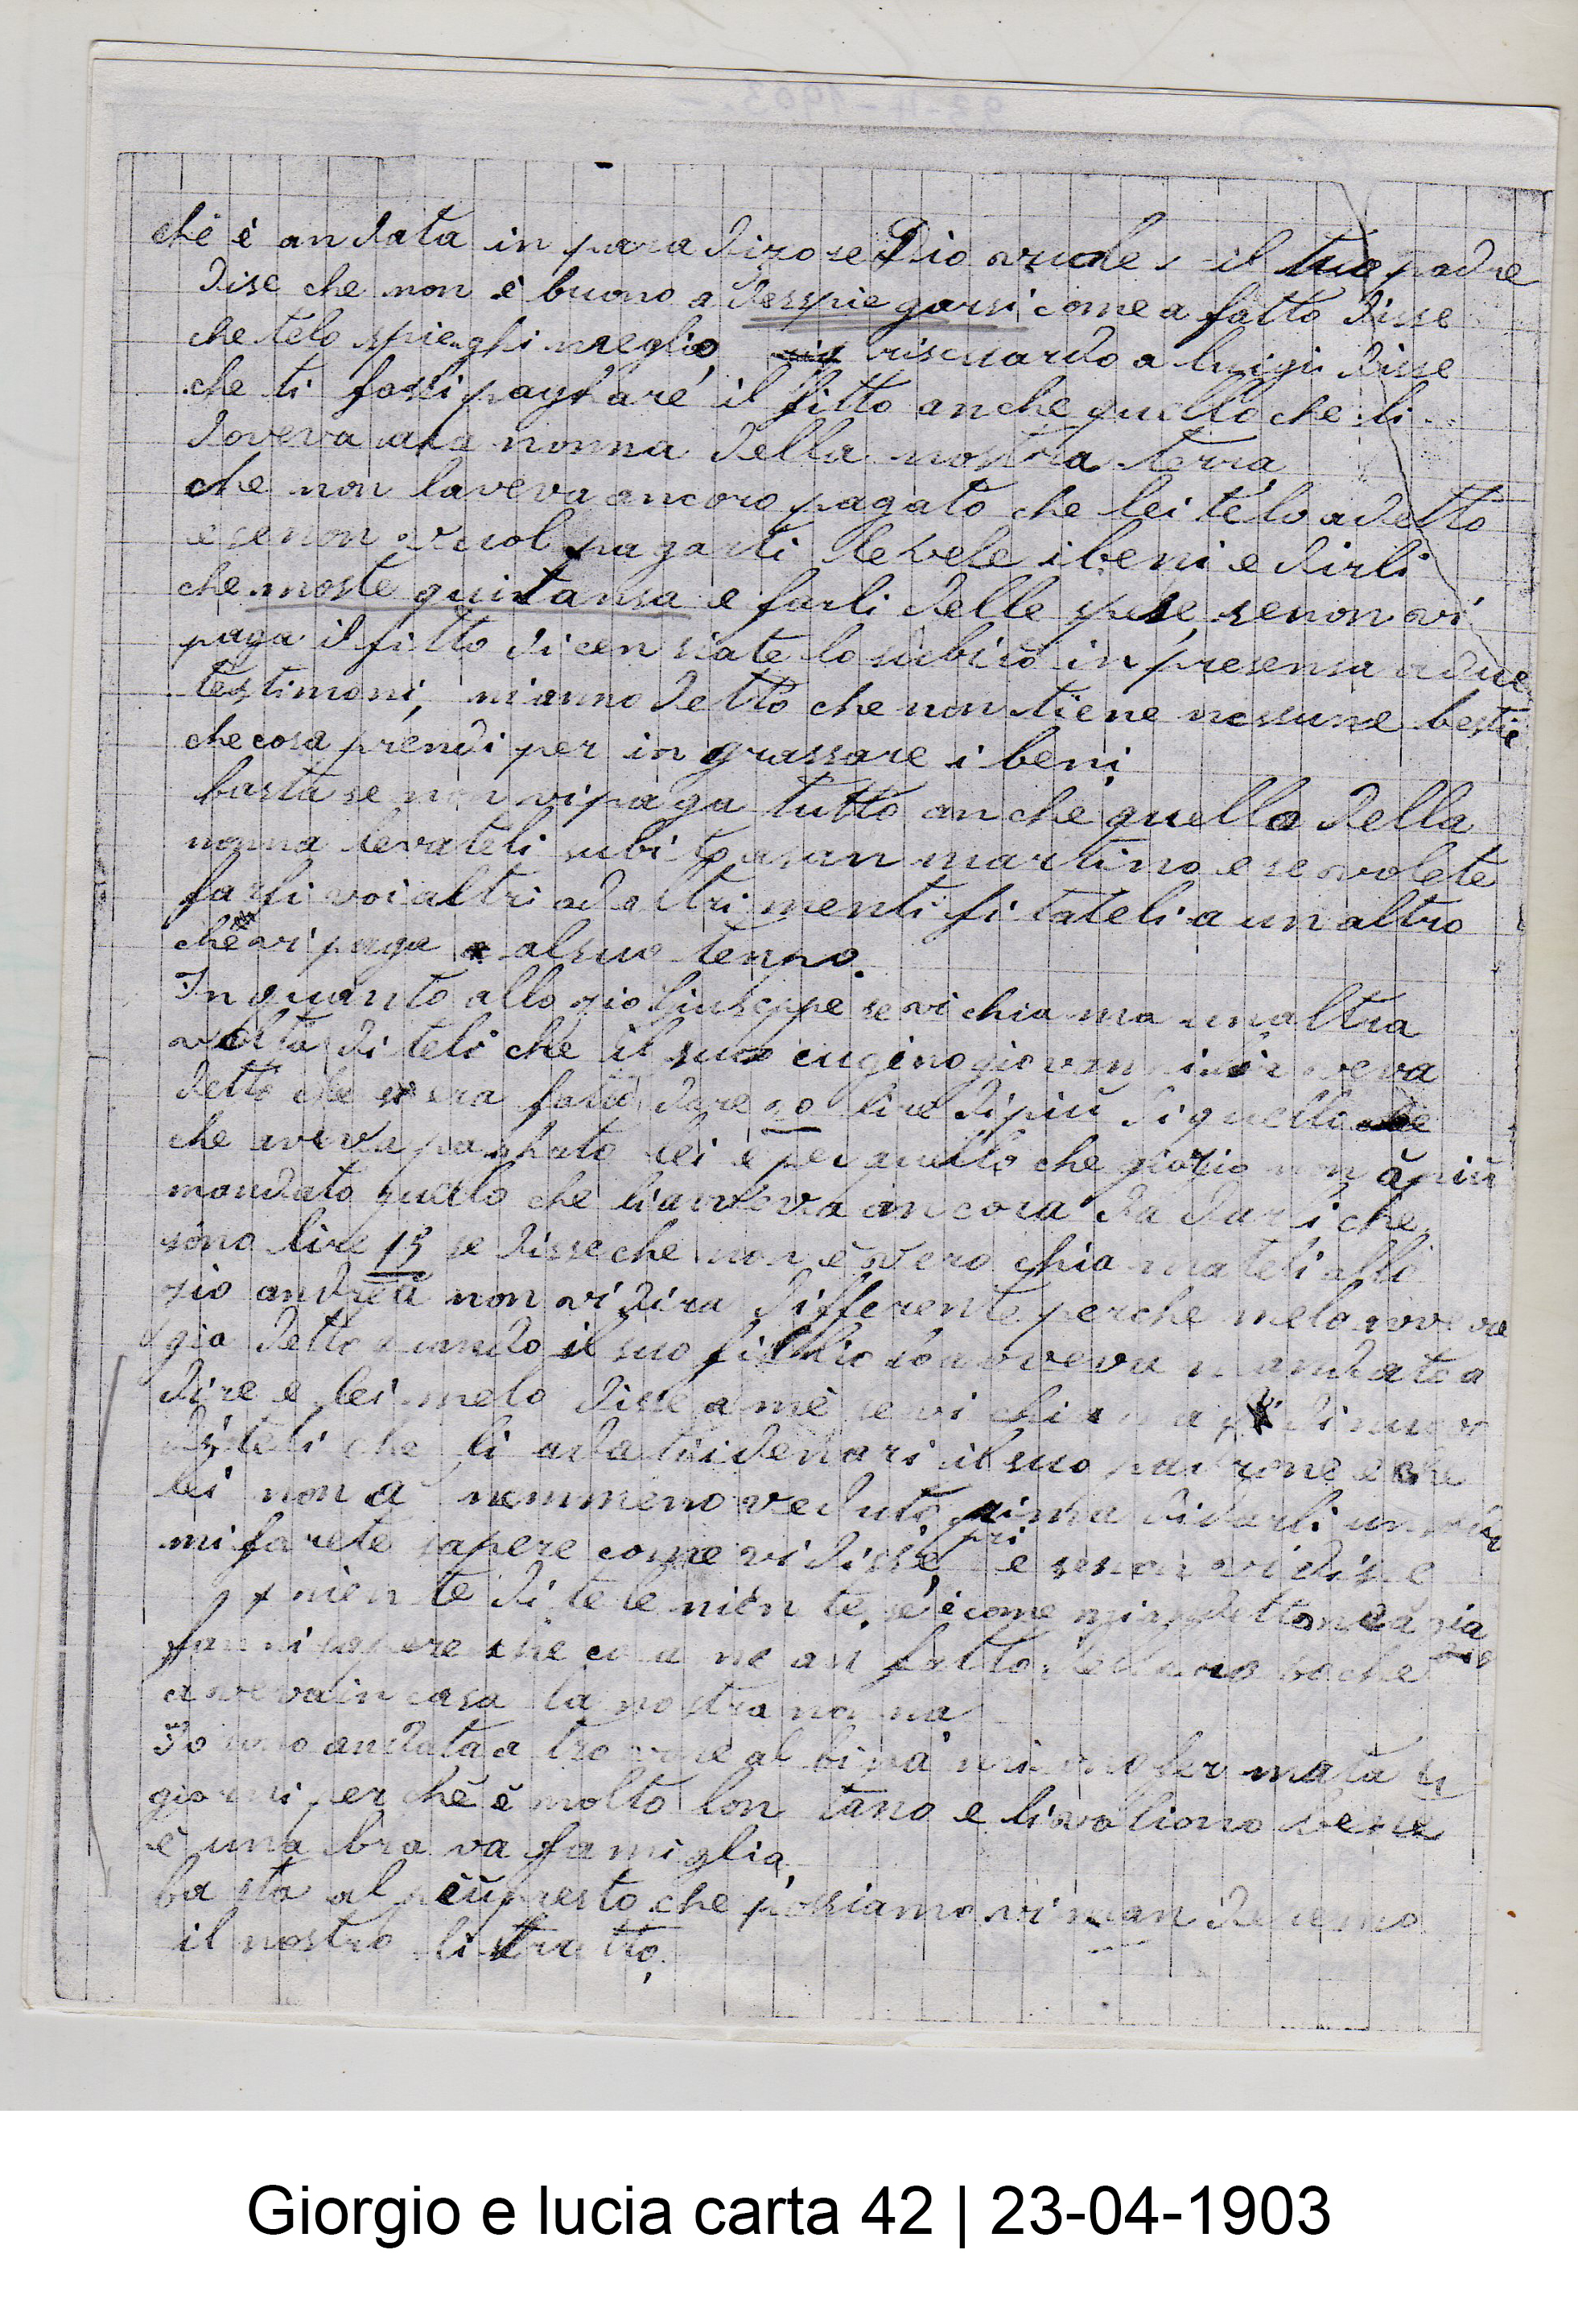 chè è andata in paradizo se Dio vuole, il tuo padre
dise che non è buono a desspiegarsi come a fatto disse
che telo spieghi meglio, riscuardo a luigi disse
che ti fassi paghare il fitto anche quello che li
doveva ala nonna della nostra terra
che non laveva ancoro pagato che lei telo a detto
e senon vuol pagarli levele i beni e dirli
che moste quitansa e farli delle spese senon vi
paga il fitto dicensiatelo subito in presensa a due
testimoni, mianno detto che non tiene nessune bestie
che cosa prendi per ingrassare i beni
basta se non vi paga tutto anche quello della
nonna levateli subito a san martino e se volete
farli voi altri ad altrimenti fitateli a un altro
che vi paga al suo tenpo.
In quanto allo zio Giuseppe se vi chiama unaltra
volta diteli che il suo cugino giovanni aveva
detto che era fatto dare 20 lire di più di quello
che aveva paghato lei è per quello che giorgio non à più
mandato quello che li aveva ancora da darli che
sono lire 15 se disse che non è vero chiamateli allo
zio andrea non vi dira differente perche melo aveva
gia detto quando il suo filhio lo aveva mandato a
dire e lei melo disse a mè se vi chiama di nuovo
diteli che li a dati i denari il suo padrone e che
lei non a nemmeno veduto prima di darli
mi farete sapere come vi disse, e senon vi disse
niente ditele niente, se è come mi a detto
farmi sapere che cosa ne an fatto della robache
aveva in casa la nostra nonna
Io sono andata a trovare al bina mi sono fermata
giorni perchè è molto lontano e li voliono bene
è una brava famiglia,
basta al più presto che possiamo vi manderemo
il nostro listratto,
Giorgio e lucia carta 42 | 23-04-1903